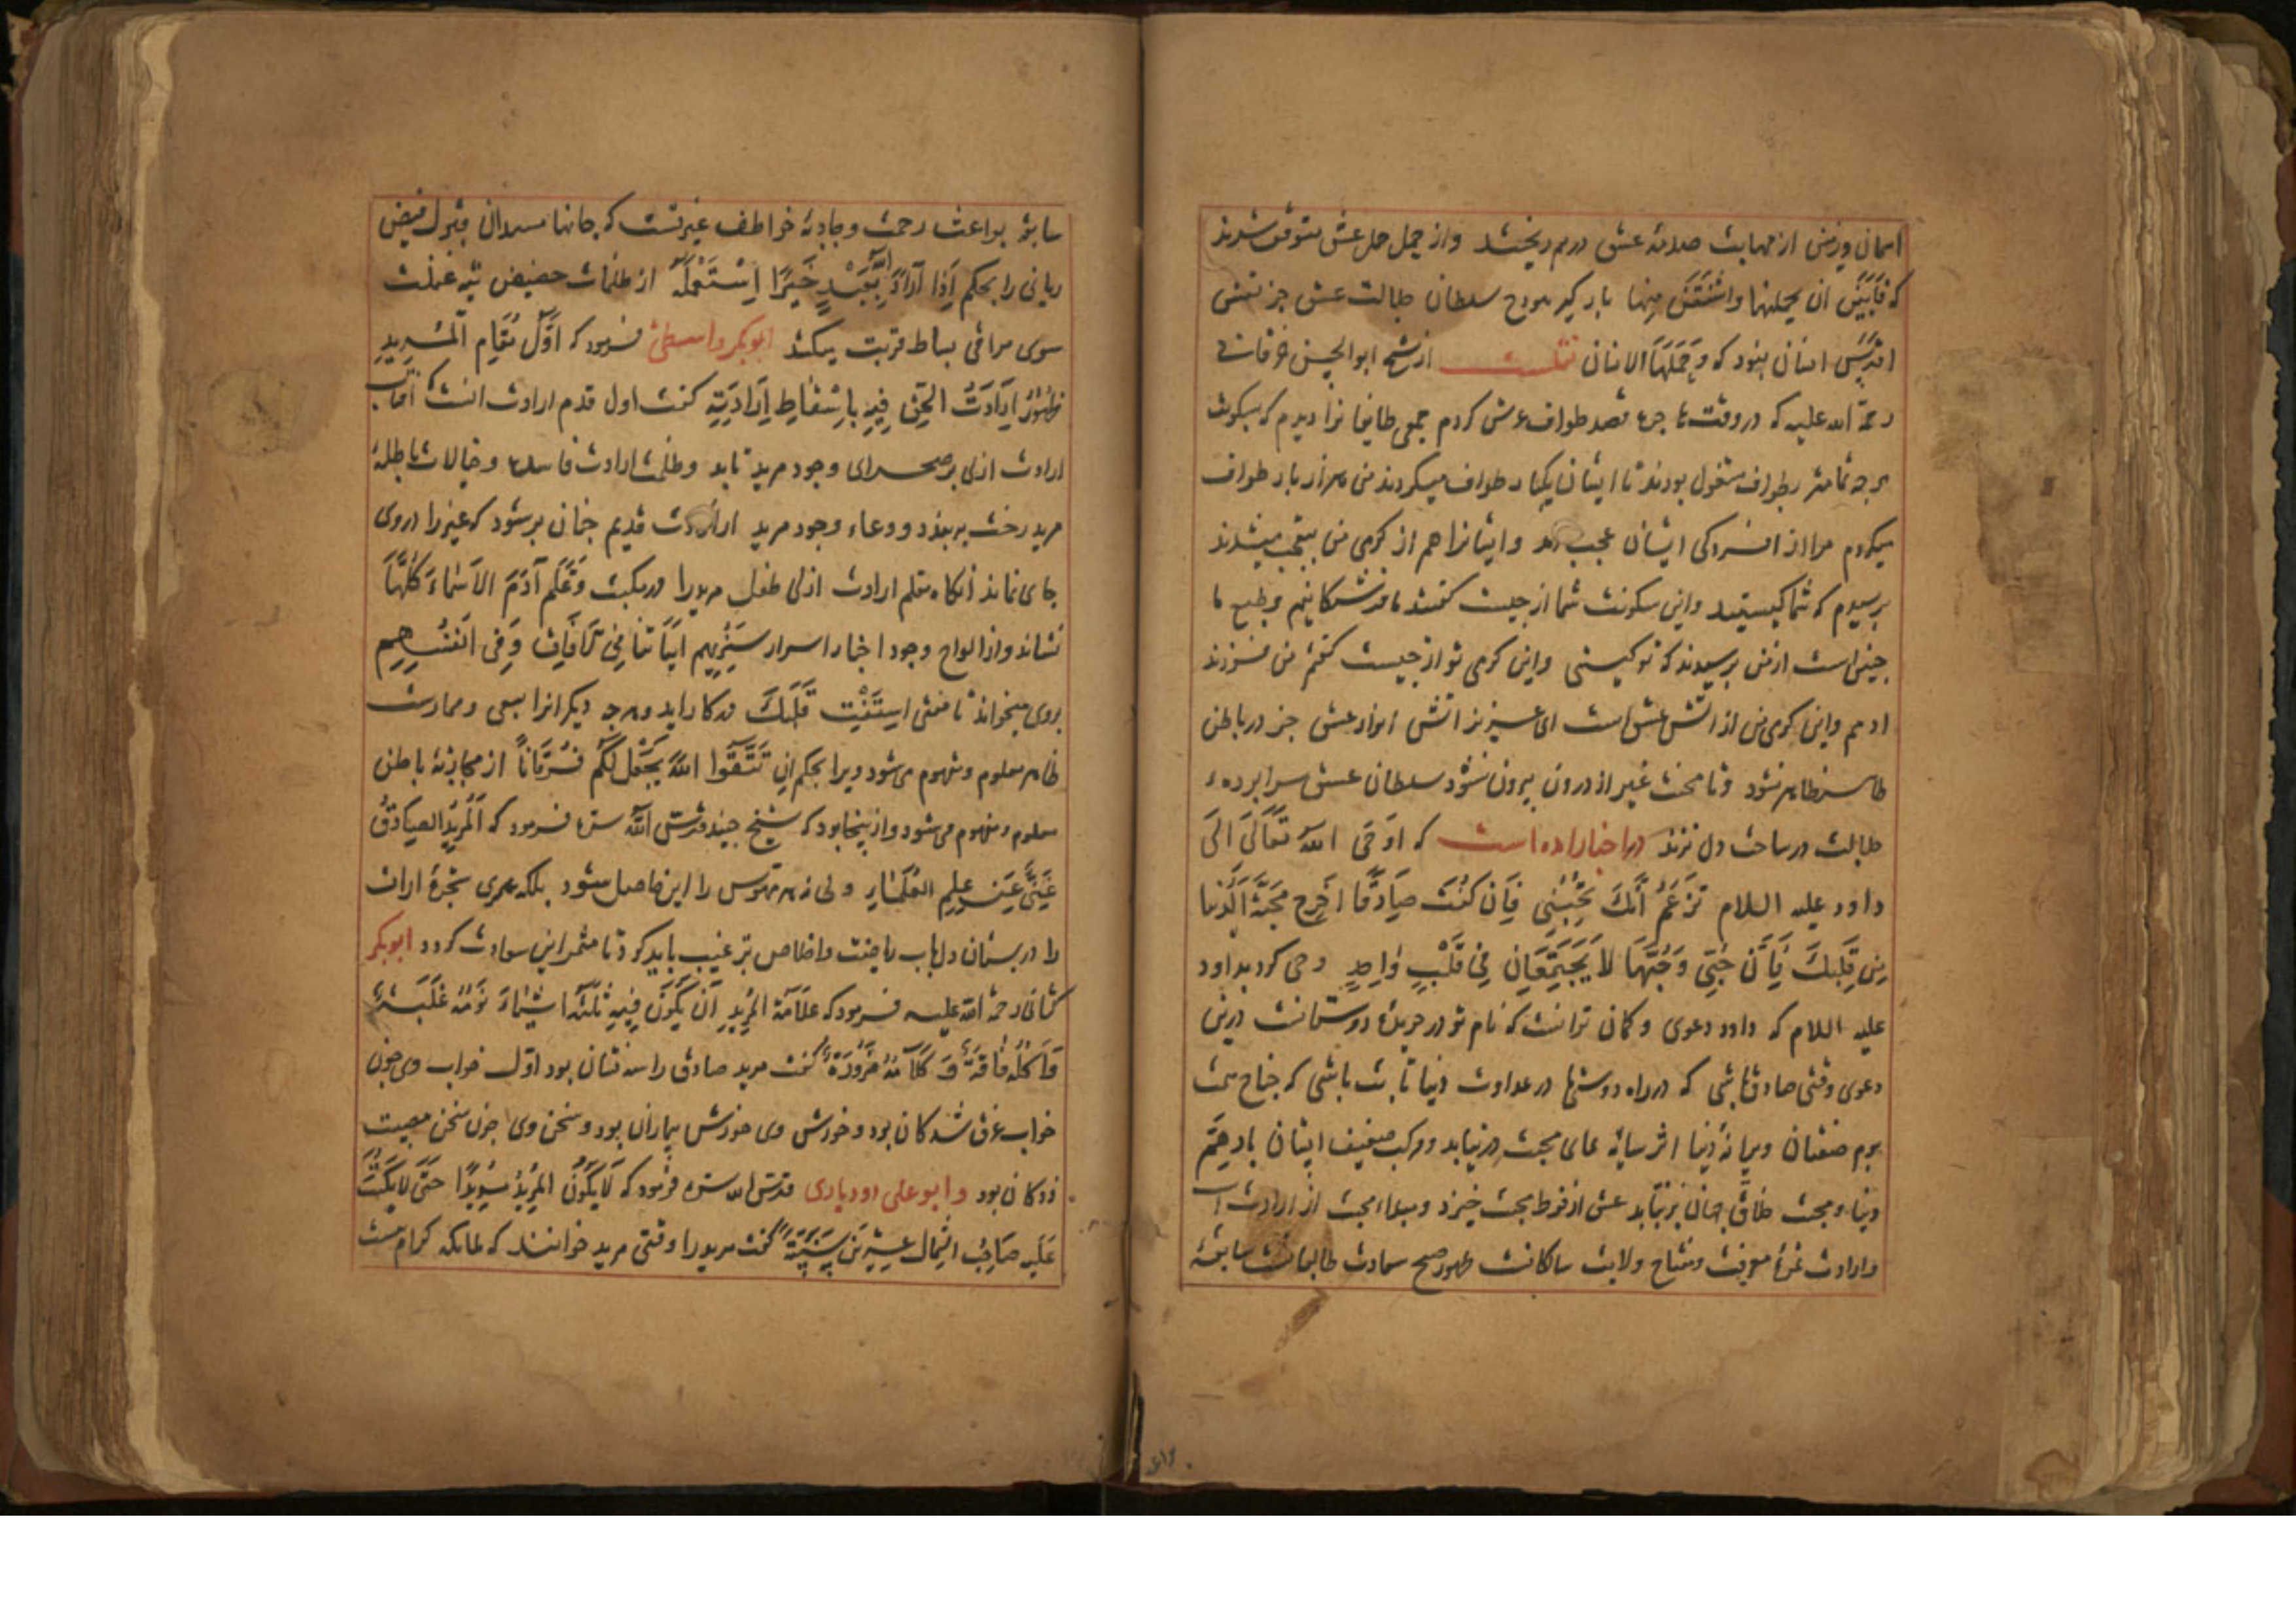 اسمان و زمین از مهابت صدمهٔ عشق درهم ریختند و از حمل عشق متوقف شدند
که فَاَبَیْنَ ان یحملنها وَاشْفَقْنَ مِنها بارگیر هودج سلطان جلالت عشق جز نفس
اقدس انسان نبود که وَحَمَلَهَا الانسان نقلست از شیخ ابوالحسن خرقانی
رحمة الله علیه که در وقت ماجرء قصد طواف عرش کردم جمعی طایفانرا دیدم که بسکونت
هرچه تمامتر بطواف مشغول بودند تا ایشان یکبار طواف میکردند من هزار بار طواف
میکردم مرا از افسردگی ایشان عجب امد و ایشانرا هم از گرمی من تعجب میشدند
پرسیدم که شما کیستید و این سکونت شما از چیست گفتند ما فرشتگانیم و طبع ما
چنین است از من پرسیدند که تو کیستی و این گرمی تو از چیست گفتم من فرزند
ادمم و این گرمی من از اتش عشق است ای عزیز اتش انوار عشق جز در باطن
طاهر ظاهر نشود و تا محبت غیر از درون بیرون نشود سلطان عشق سراپردهء
جلالت در ساحت دل نزند در اخبار امده است که اَوحَی اللهُ تَعَالَی اِلَی
داود علیه السلام تَزعَمُ اَنَّکَ تُحِبُّنِی فَاِن کُنتَ صَادِقًا اَخرِج مَحَبَّةَ الدُّنیا
مِن قَلبِکَ فَاِنَّ حُبِّی وَحُبَّهَا لَا یَجتَمِعَانِ فِی قَلبٍ وَاحِدٍ وحی کرد بداود
علیه السلام که داود دعوی و کمان ترانست که نام تو در جریدهٔ دوستانست در این
دعوی وقتی صادق باشی که در راه دوستی ما در عداوت دنیا ثابت باشی که جناح همت
بوم صفتان ویرانهٔ دنیا اثر سایهٔ همای محبت در نیابد و مرکب ضعیف ایشان بار هم
دنیا و محبت خلاق جهان برنتابد عشق از فرط محبت خیزد و مبداء محبت از ارادت است
و ارادت غرهٔ معرفت و مفتاح ولایت سالکانست ظهور صبح سعادت طالبانست سابقهٔ
سابقهٔ بواعث رحمت و جاذبهٔ خواطف غیرتست که جانها مستعدان قبول فیض
ربانی را بحکم اِذَا اَرَادَ اللهُ بِعَبْدٍ خَیرًا اِسْتَعْمَلَهُ از ظلمات حضیض تیه غفلت
سوی مراقی بساط قربت میکشد ابوبکر واسطی فرمود که اَوَّلُ مَقَامِ المُرِیدِ
ظُهُورُ اِرَادَتِ الحَقِّ فِیهِ بِاِسْقَاطِ اِرَادَتِهِ گفت اول قدم ارادت انست که آفتاب
ارادت ازلی بر صحرای وجود مرید تابد و ظلمت ارادت فاسده و خیالات باطلهٔ
مرید رخت بربندد و وعاء وجود مرید از ارادت قدیم چنان پر شود که غیر را در وی
جای نماند انکاه معلم ارادت ازلی طفل مرید را در مکتب وَعَلَّمَ آدَمَ الاَسْمَاءَ کُلَّهَا
نشاند و از الواح وجود اخبار اسرار سَنُرِیهِم آیَاتِنَا فِی الآفَاقِ وَفِی اَنفُسِهِم
بروی میخواند تا مفتی اِستَفْتِ قَلبَکَ در کار اید و هرچه دیگرانرا بسعی و ممارست
ظاهر معلوم و مفهوم می شود ویرا بحکم اِن تَتَّقُوا اللهَ یَجْعَل لَکُم فُرقَانًا از مجاذبهٔ باطن
معلوم و مفهوم می شود و از اینجا بود که شیخ جنید قدس الله سره فرمود که اَلمُرِیدُ الصَّادِقُ
غَنِیٌّ عَن عِلمِ العُلَمَاءِ ولی نه هر مهوس را این حاصل شود بلکه عمری شجرهٔ ارادت
را در بستان دل باب ریاضت و اخلاص ترغیب باید کرد تا مثمر این سعادت گردد ابوبکر
کتانی رحمة الله علیه فرمود که عَلَامَةُ المُرِیدِ اَن یَکُونَ فِیهِ ثَلٰثَةُ اَشْیَاءَ نَومُهُ غَلَبَةٌ
وَاَکلُهُ فَاقَةٌ وَکَلَامُهُ ضَرُورَةٌ گفت مرید صادق را سه نشان بود اوّل خواب وی چون
خواب غرق شدگان بود و خورش وی خورش بیماران بود و سخن وی چون سخن مصیبت
زدگان بود و ابو علی رودباری قدس الله سره فرمود که لَا یَکُونُ المُرِیدُ مُرِیدًا حَتَّی لَا یَکتُبَ
عَلَیهِ صَاحِبُ الشِّمَالِ عِشرِینَ سَنَةً گفت مرید را وقتی مرید خوانند که ملائکه کرام بیست